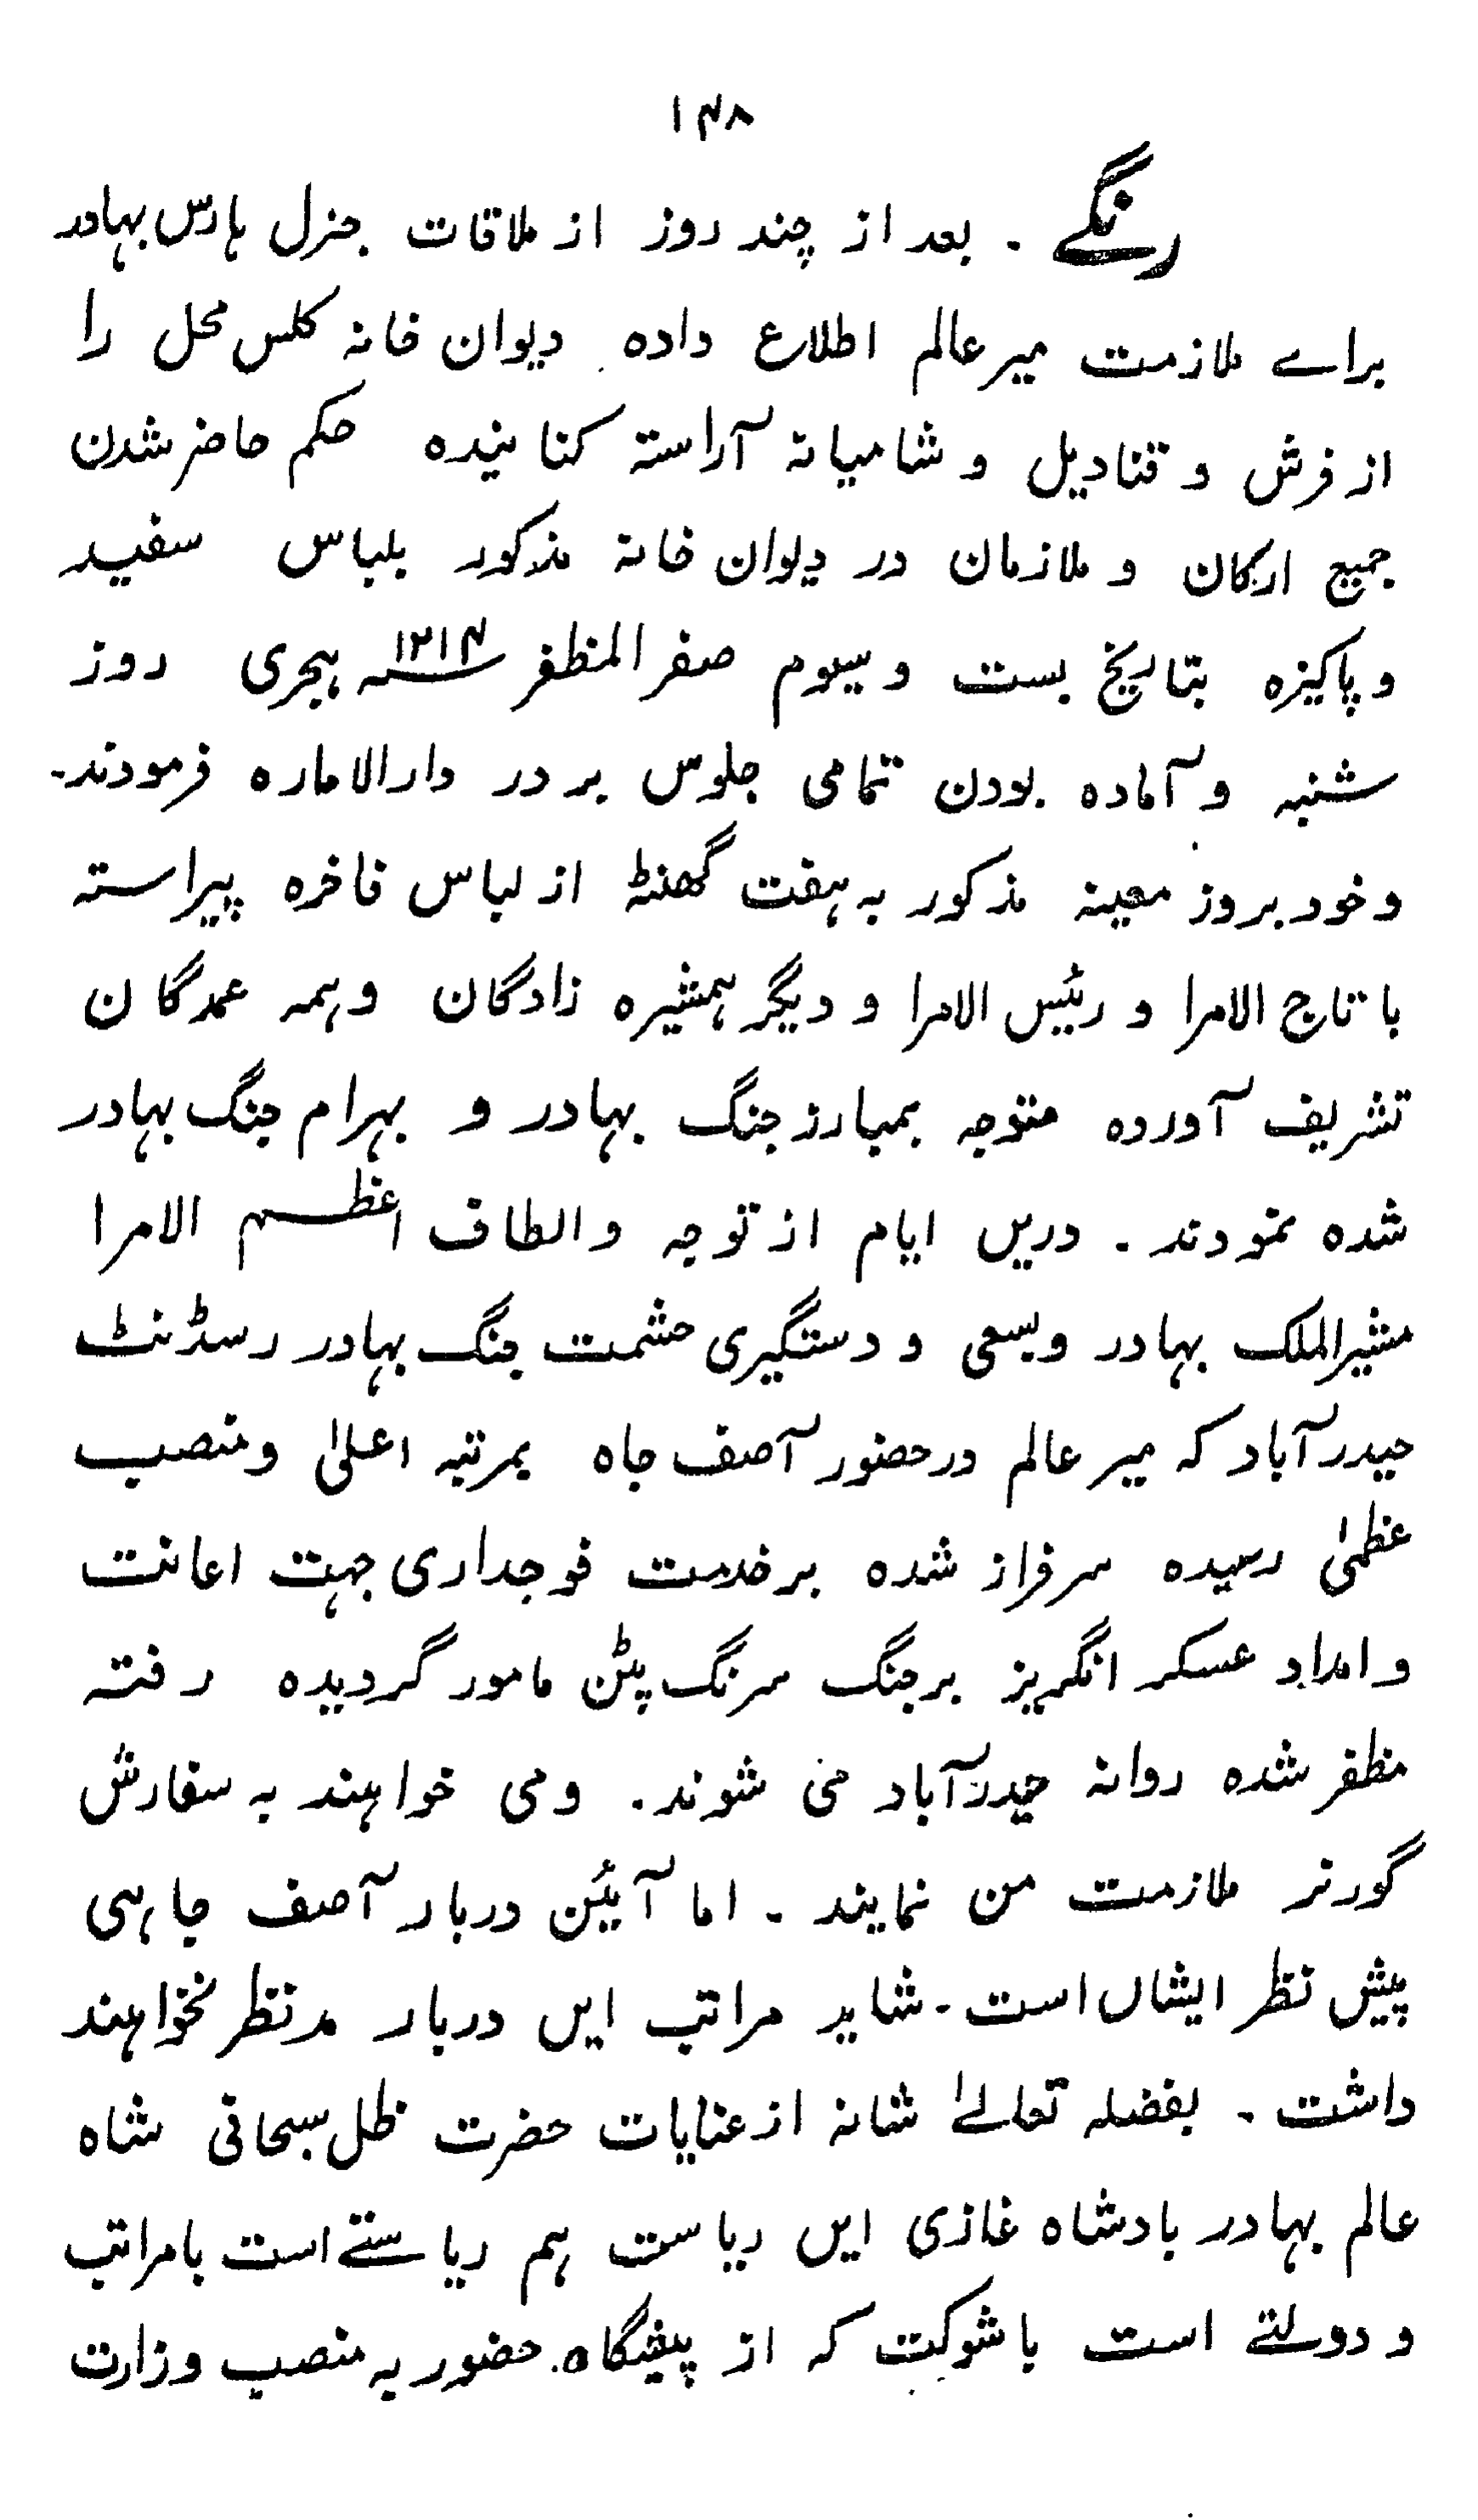 ۱۴۸
رنگے ۔ بعد از چند روز از ملاقات جنرل ہارس بہادر
براے ملازمت میر عالم اطلاع دادہ دیوان خانہ کلس محل را
از فرش و قنادیل و شامیانہ آراستہ کنانیدہ حکم حاضر شدن
جمیع ارکان و ملازمان در دیوان خانہ مذکور بلباس سفید
و پاکیزہ بتاریخ بست و سیوم صفر المظفر ۱۲۱۴؁ ہجری روز
شنبہ و آمادہ بودن تمامی جلوس بر در دارالامارہ فرمودند۔
و خود بروز معینہ مذکور بہ ہفت گھنٹہ از لباس فاخرہ پیراستہ
با تاج الامرا و رئیس الامرا و دیگر ہمشیرہ زادگان و ہمہ عمدگان
تشریف آوردہ متوجہ بمبارز جنگ بہادر و بہرام جنگ بہادر
شدہ نمودند ۔ دریں ایام از توجہ و الطاف اعظم الامرا
مشیر الملک بہادر و بسعی و دستگیری حشمت جنگ بہادر رسڈنٹ
حیدرآباد کہ میر عالم در حضور آصف جاہ بمرتبہ اعلیٰ و منصب
عظمیٰ رسیدہ سرفراز شدہ بر خدمت فوجداری جہت اعانت
و امداد عسکر انگریز بر جنگ سرنگ پٹن مامور گردیدہ رفتہ
مظفر شدہ روانہ حیدرآباد می شوند ۔ و می خواہند بہ سفارش
گورنر ملازمت من نمایند ۔ اما آئین دربار آصف جاہی
پیش نظر ایشاں است ۔ شاید مراتب ایں دربار مد نظر نخواہند
داشت ۔ بفضلہ تعالےٰ شانہ از عنایات حضرت ظل سبحانی شاہ
عالم بہادر بادشاہ غازی ایں ریاست ہم ریاستے است با مراتب
و دولتے است با شوکت کہ از پیشگاہ حضور بہ منصب وزارت